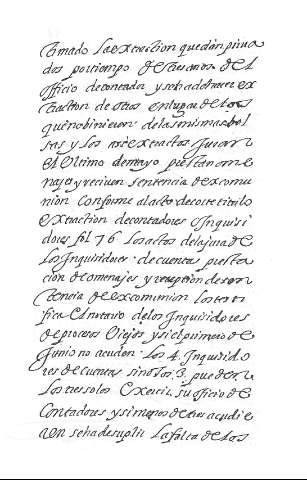 tomado la extraction quedan priua
dos por tiempo de tres años del
officio de contador y se ha de hacer ex
traction de otros en lugar de los
que no binieron de las mismas bol
sas y los assi extractos juran
el ultimo de mayo prestan ome
najes y reciuen sentencia de excomu
nion conforme al acto de corte titulo
extraction de contadores e Inquisi
dores fol 76 los actos de la jura de
los Inquisidores de cuentas presta
cion de omenajes y recepcion de sen
tencia de excomunion los testi
fica el notario de los Inquisidores
de procesos Viejos y si el primero de
Junio no acuden los 4 Inquisido
res de cuentas sino los 3 pueden
los tres solos exercir su officio de
Contadores y si menos de tres acudie
ren se ha de suplir la falta de los